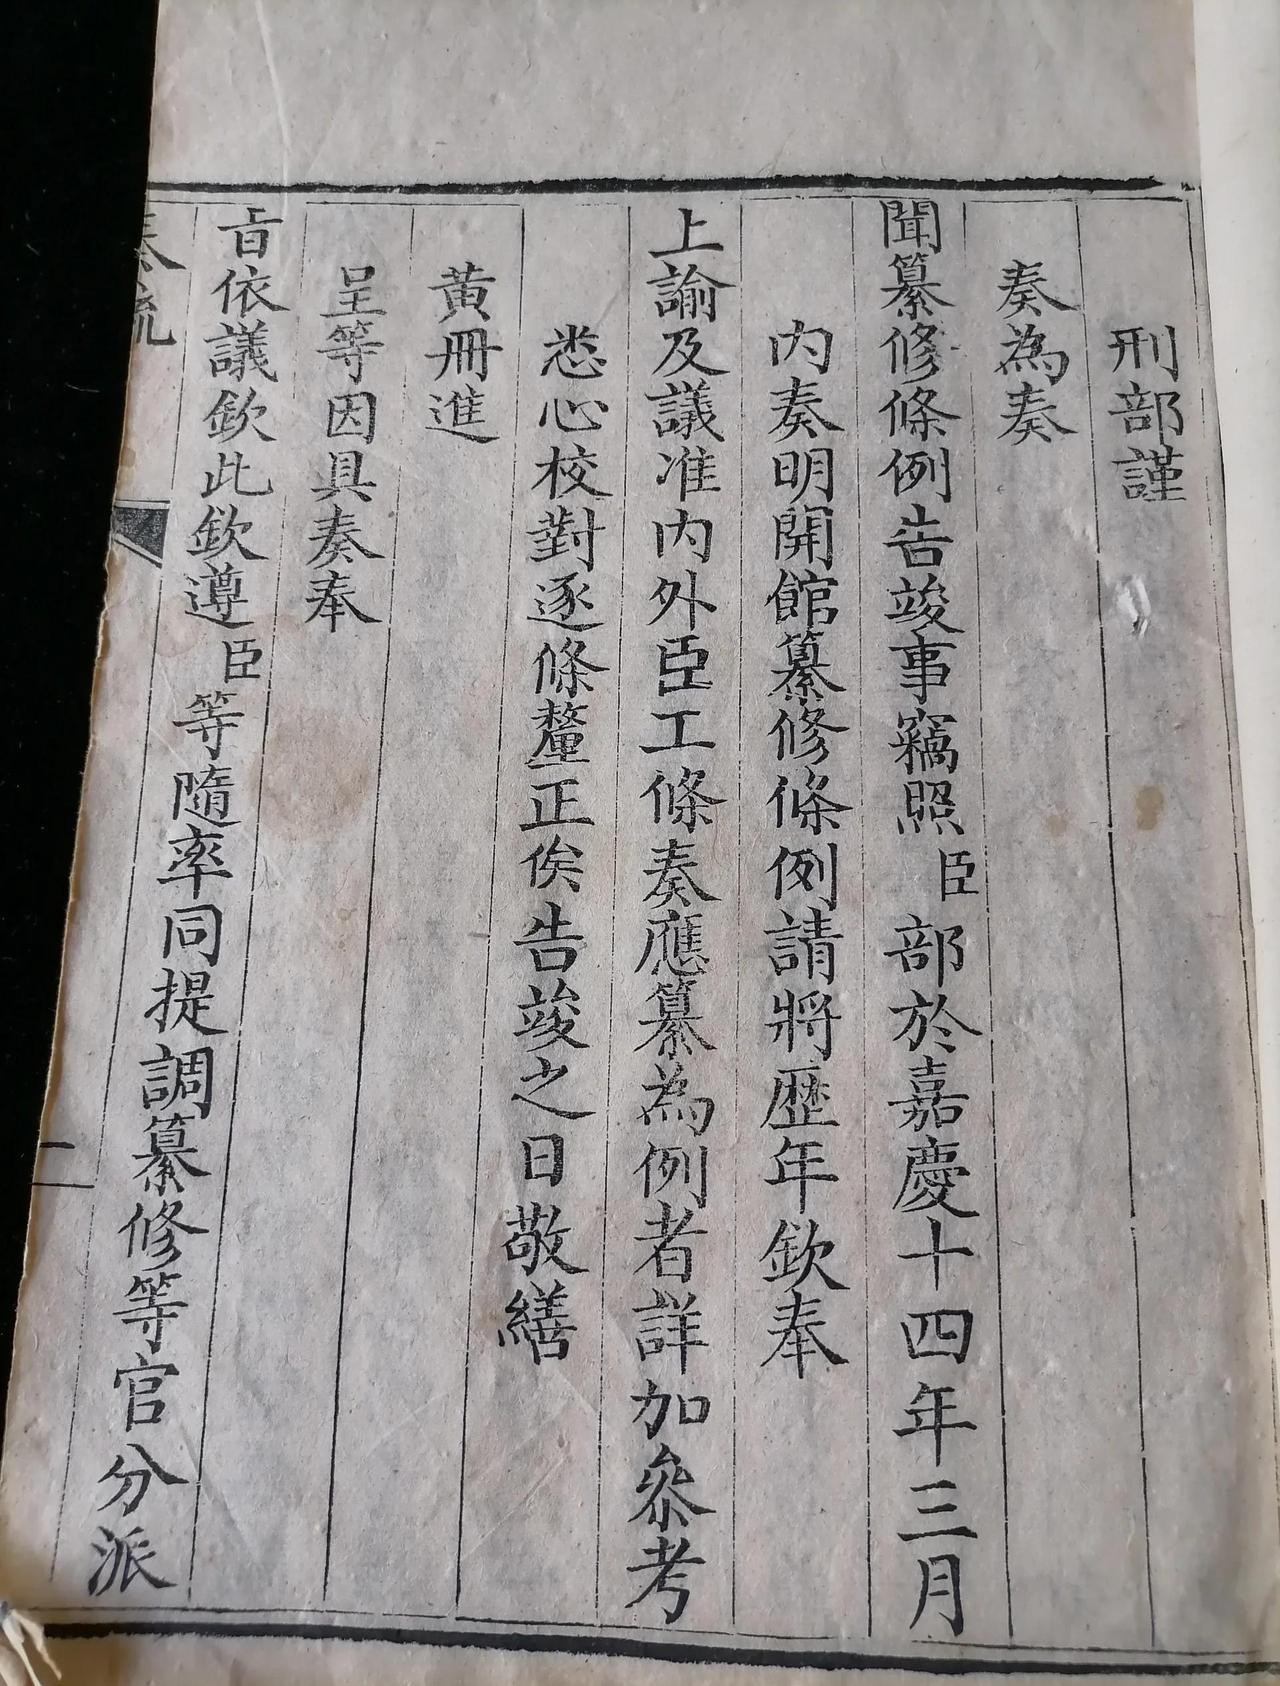 刑部謹
奏為奏
聞纂修條例告竣事竊照臣部於嘉慶十四年三月
内奏明開館纂修條例請將歷年欽奉
上諭及議准内外臣工條奏應纂為例者詳加叅考
悉心校對逐條釐正俟告竣之日敬繕
黄冊進
呈等因具奏奉
旨依議欽此欽遵臣等隨率同提調纂修等官分派
奏疏
二